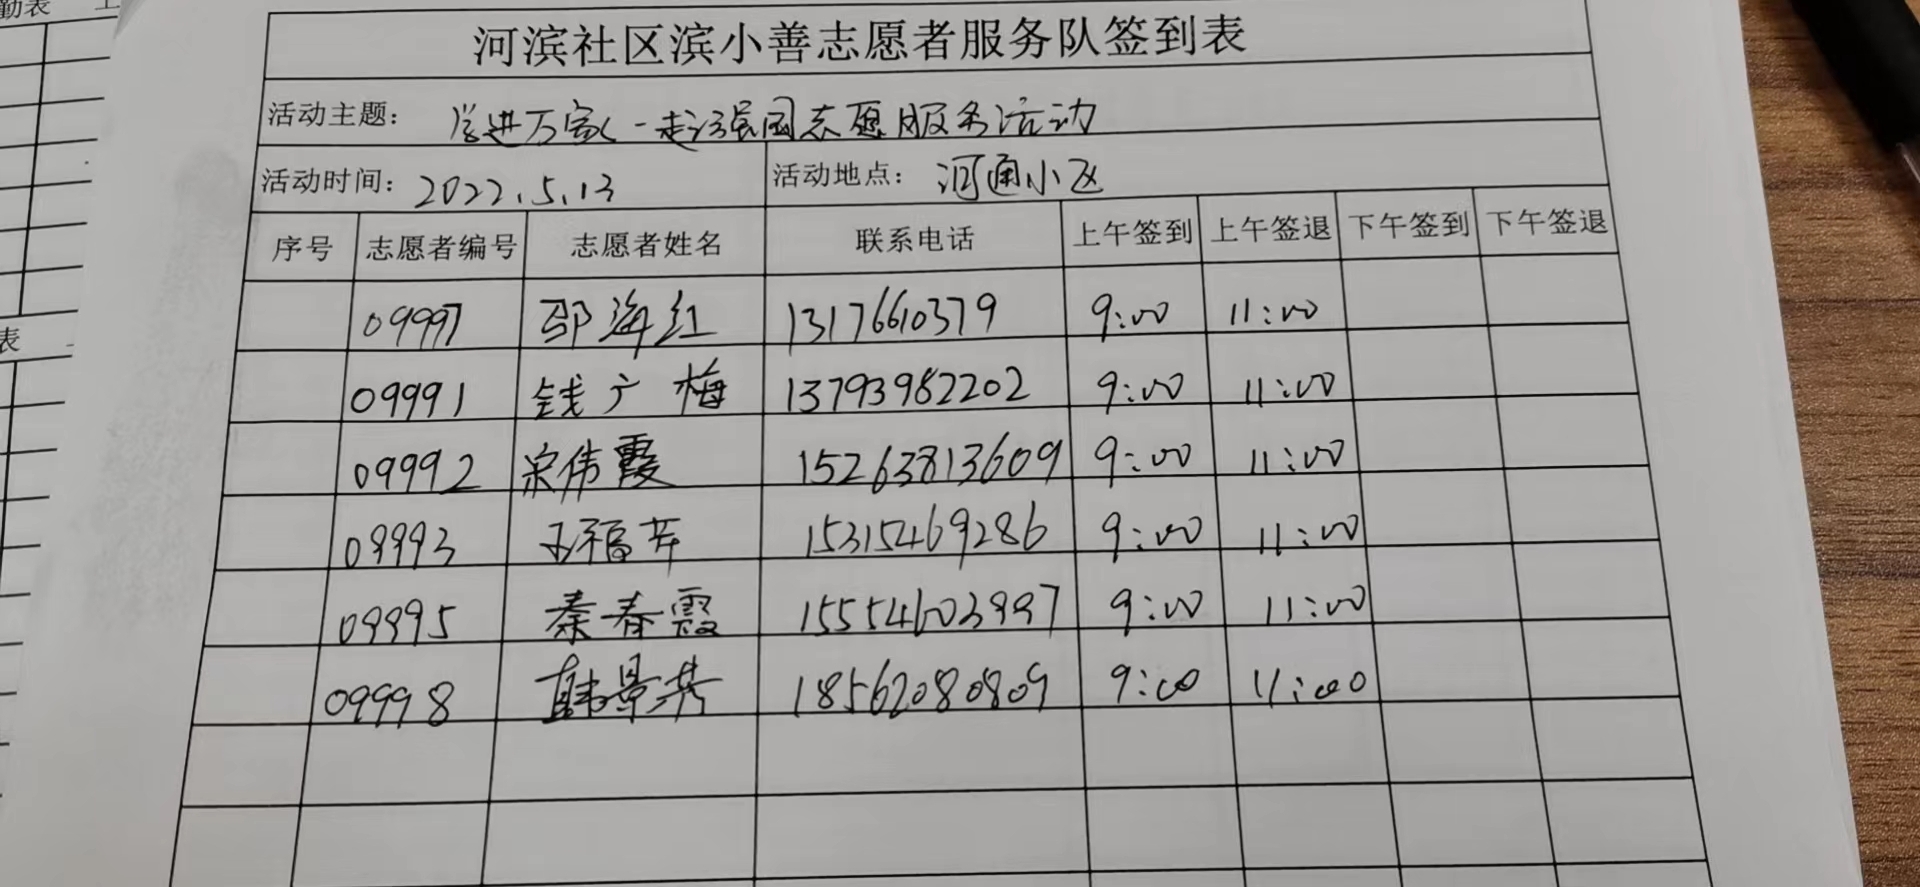 河滨社区滨小善志愿者服务队签到表
活动主题： 学进万家 一起强国志愿服务活动
活动时间：2022.5.13 活动地点：河通小区
序号 志愿者编号 志愿者姓名 联系电话 上午签到 上午签退 下午签到 下午签退
09997 邵海红 13176610379 9:00 11:00
09991 钱广梅 13793982202 9:00 11:00
09992 宋伟霞 15263813609 9:00 11:00
09993 王福芹 15315469286 9:00 11:00
09995 秦春霞 15554603997 9:00 11:00
09998 韩景芬 18562080809 9:00 11:00
勤表
表